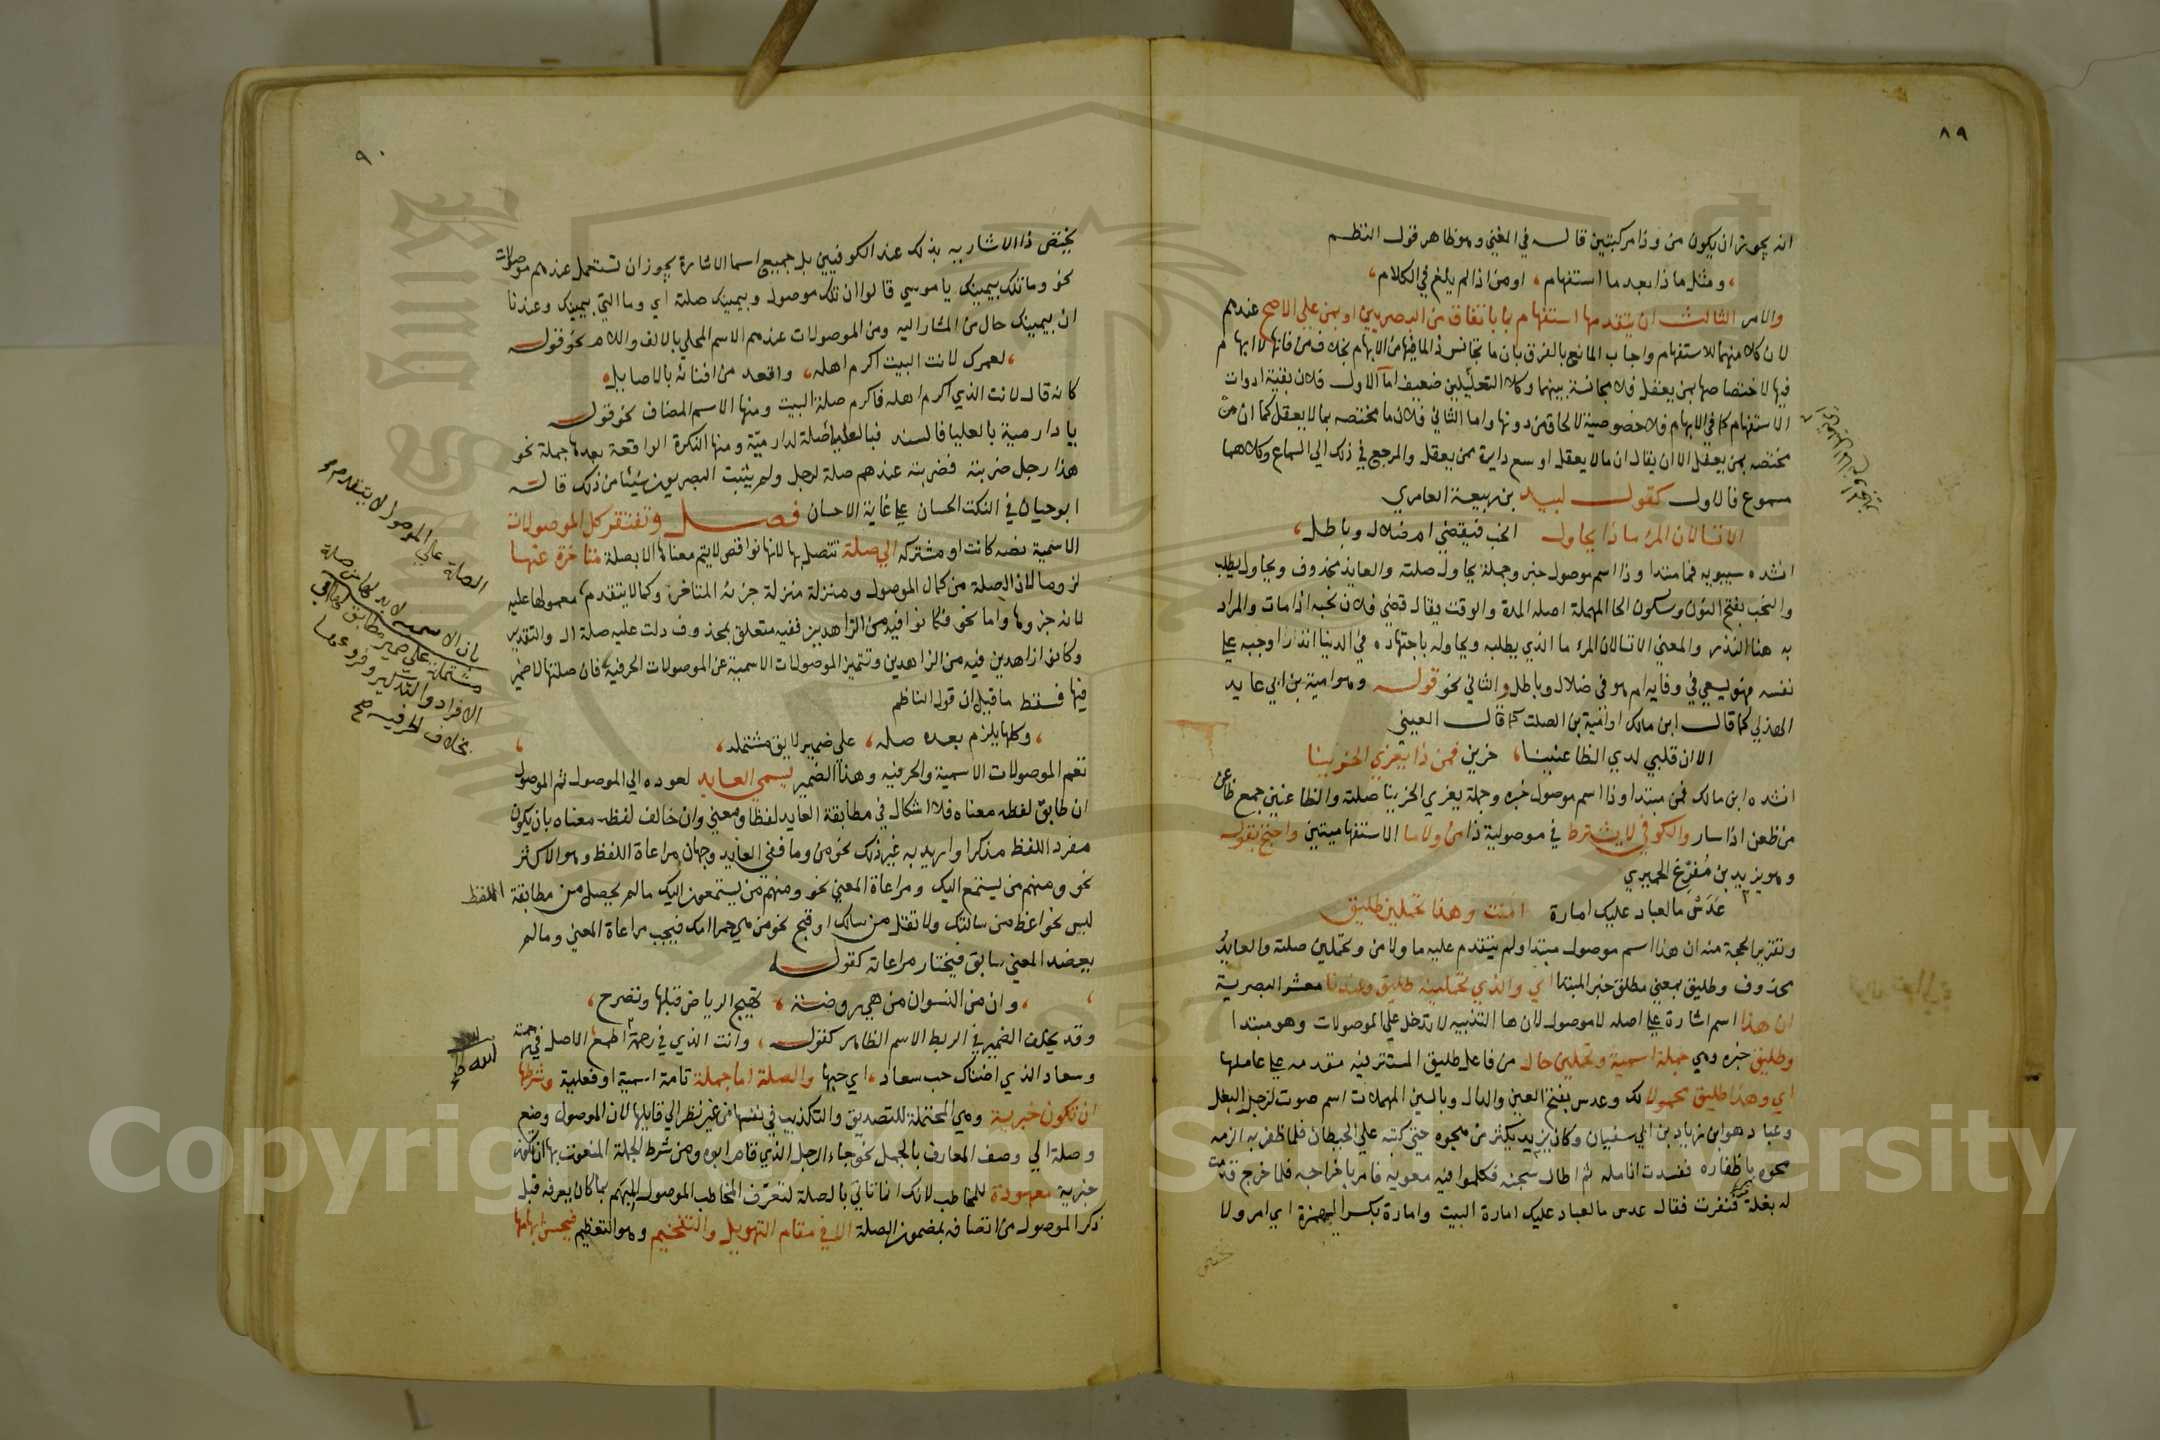 ٨٩
انه يجوز ان يكون من وذا مركبتين قال في المغني وهو ظاهر قول الناظم
ومثل ماذا بعد ما استفهام ، او من اذا لم يلغ في الكلام ،
والامر الثالث ان يتقدمها استفهام بما باتفاق من البصريين او بمن على الاصح عندهم
لان كلا منهما للاستفهام واجاب المانع بالفرق بان ما تجانس ذا لما فيها من الابهام بخلاف من فانها لا ابهام
فيها لاختصاصها بمن يعقل فلا مجانسة بينهما وكلا التعليلين ضعيف اما الاول فلان بقية ادوات
الاستفهام كما في الابهام فلا خصوصية لالحاق من دونها واما الثاني فلان ما مختصه بما لا يعقل كما ان من
مختصه بمن يعقل الا ان يقال ان ما لا يعقل اوسع دايرة ممن يعقل والمرجع في ذلك الى السماع وكلاهما
مسموع فالاول كقول لبيد بن ربيعة العامري
الا تسالان المرء ماذا يحاول انحب فيقضي ام ضلال وباطل ،
انشده سيبويه فما مبتدا وذا اسم موصول خبر وجملة يحاول صلته والعايد محذوف ويحاول يطلب
والنحب بفتح النون وسكون الحا المهملة اصله المدة والوقت يقال قضي فلان نحبه اذا مات والمراد
به هنا النذر والمعني الا تسالان المرء ما الذي يطلبه ويحاوله باجتهاده في الدنيا انذرا اوجبه على
نفسه فهو يسعي في وفايه ام هو في ضلال وباطل والثاني نحو قوله وهو امية بن ابي عايد
الهذلي كما قال ابن مالك او امية بن الصلت كما قال العيني
الا ان قلبي لدي الظاعنينا ، حزين فمن ذا يعزي الحزينا
انشده ابن مالك فمن مبتدا وذا اسم موصول خبره وجملة يعزي الحزينا صلته والظاعنين جمع ظاعن
من ظعن اذا سار والكوفي لا يشترط في موصولية ذا من ولا ما الاستفهاميتين واحتج بقوله
وهو يزيد بن مفرغ الحميري
عدس ما لعباد عليك امارة امنت وهذا تحملين طليق
وتقرير الحجة منه ان هذا اسم موصول مبتدا ولم يتقدم عليه ما ولا من وتحملين صلته والعايد
محذوف وطليق بمعني مطلق خبر المبتدا اي والذي تحملينه طليق وعندنا معشر البصرية
ان هذا اسم اشارة على اصله لا موصول لان ها التنبيه لا تدخل على الموصولات وهو مبتدا
وطليق خبره وهي جملة اسمية وتحملين حال من فاعل طليق المستتر فيه مقدمه على عاملها
اي وهذا طليق محمولا لك وعدس بفتح العين والدال وبالسين المهملات اسم صوت لزجل البغل
وعباد هو ابن زياد بن ابي سفيان وكان يزيد يكثر من هجوه حتى كتبه على الحيطان فلما ظفر به الزمه
محوه باظفاره ففسدت انامله ثم اطال سجنه فكلموا فيه معوية فامر باخراجه فلما خرج قدمت
له بغلة فنفرت فقال عدس ما لعباد عليك امارة البيت وامارة بكسر الهمزة اي امر ولا
٩٠
يختص ذا الاشاريه بذلك عند الكوفيين بل جميع اسما الاشارة يجوز ان تستعمل عندهم موصولات
نحو وما تلك بيمينك يا موسي قالوا ان تلك موصول وبيمينك صلته اي وما التي بيمينك وعندنا
ان بيمينك حال من المشار اليه ومن الموصولات عندهم الاسم المحلي بالالف واللام نحو قوله
، لعمرك لانت البيت اكرم اهله ، واقعد من افنائه بالاصايل ،
كانه قال لانت الذي اكرم اهله فاكرم صلة البيت ومنها الاسم المضاف نحو قوله
يا دار مية بالعليا فالسند فبالعليا صلة لدار مية ومنها النكرة الواقعة بعدها جملة نحو
هذا رجل ضربته فضربته عندهم صلة لرجل ولم يثبت البصريون شيئا من ذلك قاله
ابو حيان في النكت الحسان على غاية الاحسان فصل وتفتقر كل الموصولات
الاسمية نصه كانت او مشتركه الي صلة تتصل بها لانها نواقص لا يتم معناها الا بصلة متاخرة عنها
لزوما لان الصلة من كمال الموصول ومنزلة منزلة جزئه المتاخر وكما لا يتقدم معمولها عليه
لانه جزوها واما نحو وكانوا فيه من الزاهدين ففيه متعلق بمحذوف دلت عليه صلة ال والتقدير
وكانوا زاهدين فيه من الزاهدين وتتميز الموصولات الاسمية عن الموصولات الحرفية فان صلتها لا ضمير
فيها فسقط ما قيل ان قول الناظم
، وكلها يلزم بعده صله ، على ضمير لايق مشتمله ،
تعم الموصولات الاسمية والحرفيه وهذا الضمير يسمى العايد لعوده الي الموصول ثم الموصول
ان طابق لفظه معناه فلا اشكال في مطابقة العايد لفظا ومعني وان خالف لفظه معناه بان يكون
مفرد اللفظ مذكرا واريد به غير ذلك نحو من وما ففي العايد وجهان مراعاة اللفظ وهو الاكثر
نحو ومنهم من يستمع اليك ومراعاة المعني نحو ومنهم من يستمعون اليك ما لم يحصل من مطابقة اللفظ
لبس نحو اعط من سالتك ولا تقل من سالك او قبح نحو من هي حمرا امك فيجب مراعاة المعني وما لم
يعضد المعني سابق فيختار مراعاته كقوله
، وان من النسوان من هي روضة ، تهيج الرياض قبلها وتصوح ،
وقد يخلف الضمير في الربط الاسم الظاهر كقوله ، وانت الذي في رحمة الله اطمع الاصل في رحمته
وسعاد الذي اضناك حب سعاد ، اي حبها والصلة اما جملة تامة اسمية او فعلية وشرطها
ان تكون خبرية وهي المحتملة للتصديق والتكذيب في نفسها من غير نظر الي قايلها لان الموصول وضع
وصلة الي وصف المعارف بالجمل نحو جاء الرجل الذي قام ابوه ومن شرط الجملة المنعوت بها ان تكون
خبرية معهودة للمخاطب لانك انما تاتي بالصلة لتعرف المخاطب الموصول المبهم بما كان يعرفه قبل
ذكر الموصول من اتصافه بمضمون الصلة الا في مقام التهويل والتفخيم وهو التعظيم فيحسن ابهامها
الصلة على الموصول لا يتقدم
بان الاسمية لا بد لها من صلة
مشتملة على ضمير مطابق لها في
الافراد والتذكير وفروعهما
بخلاف الحرفيه صح
الله صح
King Saud
1957
Copyright © King Saud University